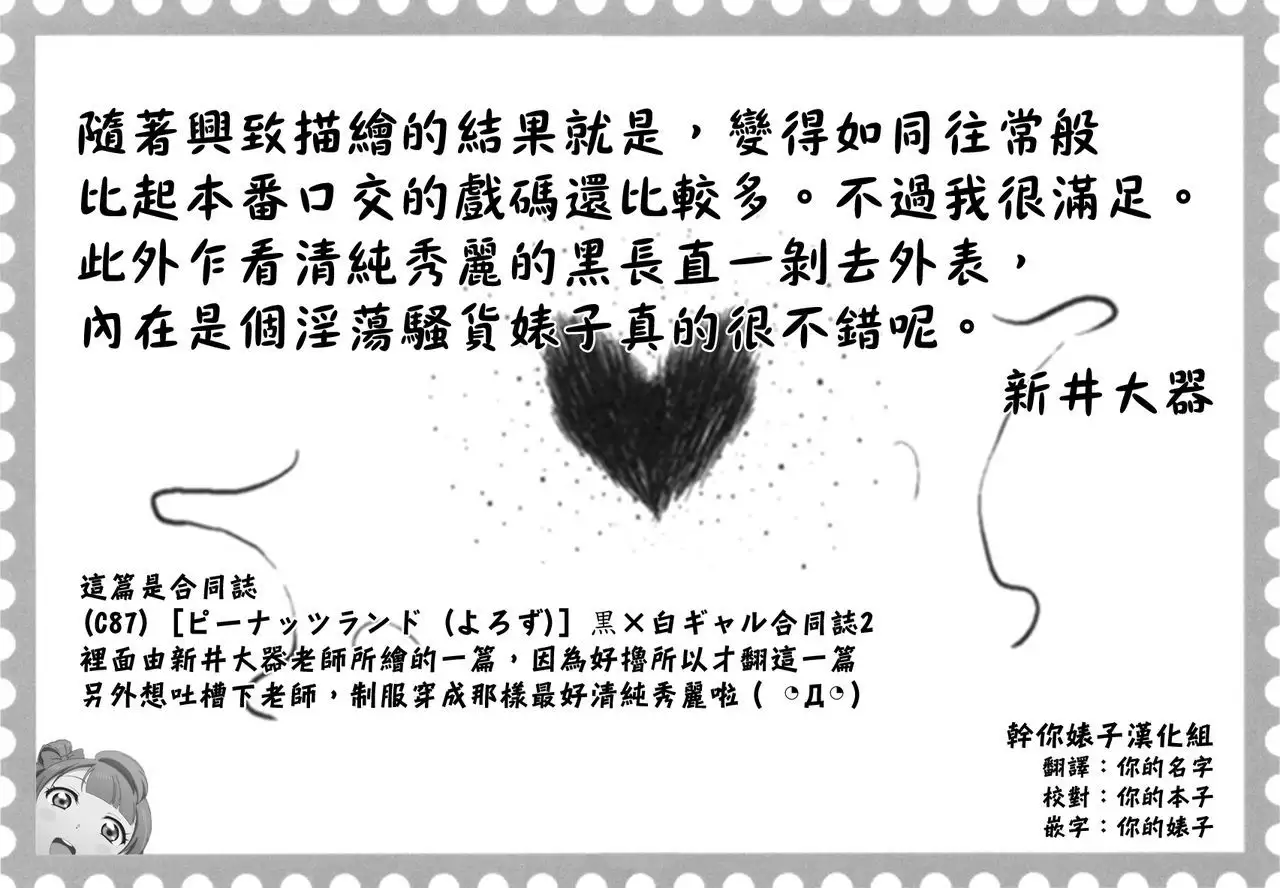 隨著興致描繪的結果就是，變得如同往常般
比起本番口交的戲碼還比較多。不過我很滿足。
此外乍看清純秀麗的黑長直一剝去外表，
內在是個淫蕩騷貨婊子真的很不錯呢。
新井大器
這篇是合同誌
(C87) [ピーナッツランド (よろず)] 黒×白ギャル合同誌2
裡面由新井大器老師所繪的一篇，因為好擼所以才翻這一篇
另外想吐槽下老師，制服穿成那樣最好清純秀麗啦( ◔Д◔)
幹你婊子漢化組
翻譯：你的名字
校對：你的本子
嵌字：你的婊子